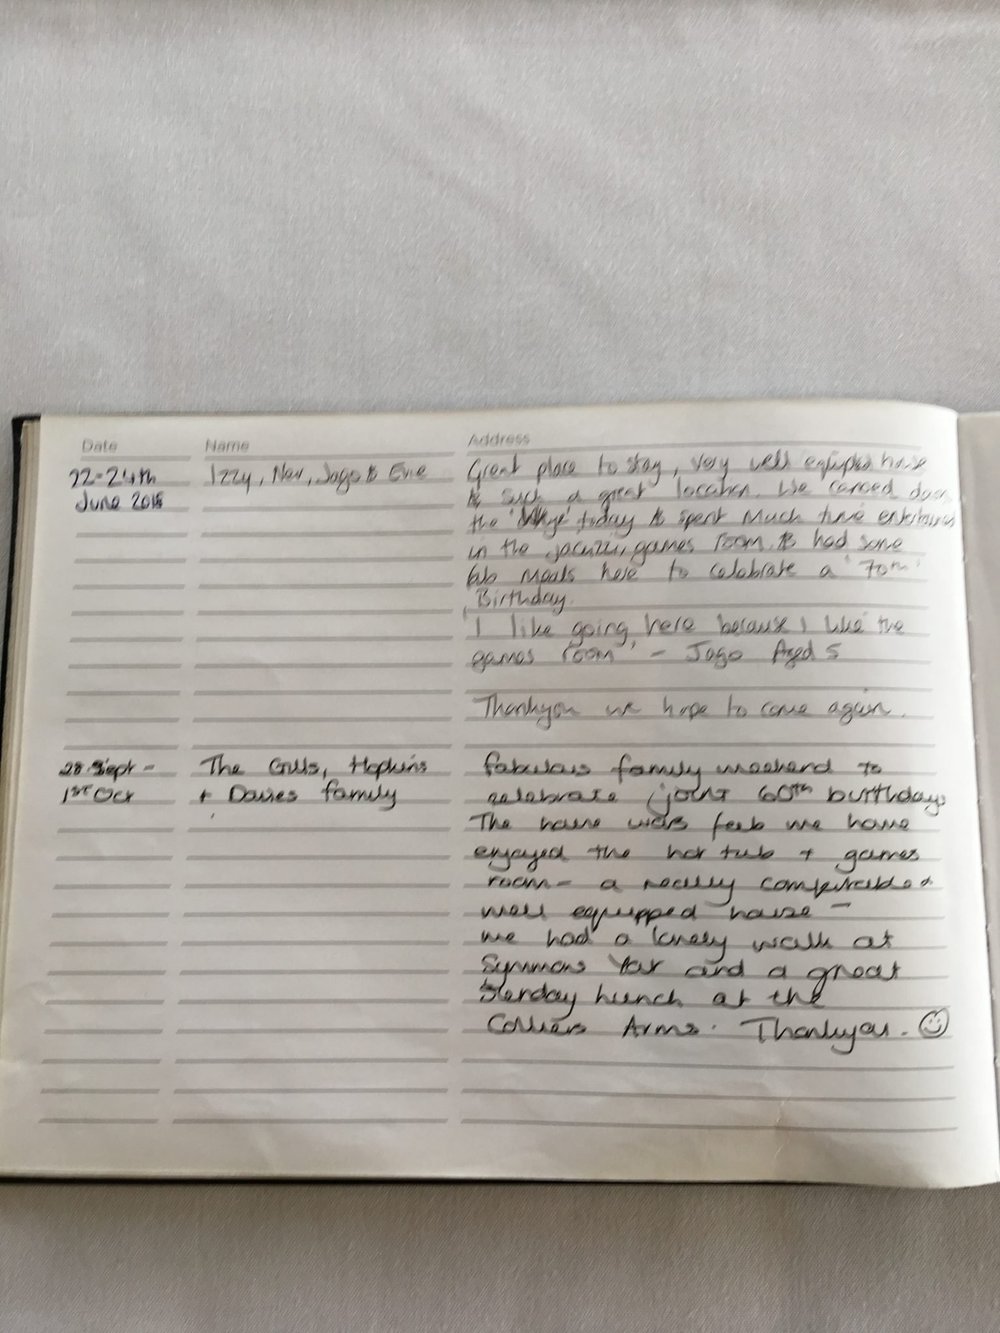 Date Name Address
22-24th Izzy, Nev, Jago & Evie Great place to stay, very well equiped house
June 2018 & such a great location. We canoed down
the 'Wye' today & spent much time entertained
in the jacuzzi, games room, & had some
fab meals here to celebrate a '70th'
Birthday.
'I like going here because I like the
games room' - Jago Aged 5
Thankyou we hope to come again.
28 Sept - The Gills, Hopkins fabulous family weekend to
1st Oct + Davies family celebrate joint 60th birthdays
The house was fab we have
enjoyed the hot tub + games
room - a really comfortable +
well equipped house -
we had a lovely walk at
Symmons Yat and a great
Sunday lunch at the
Colliers Arms. Thankyou. ☺